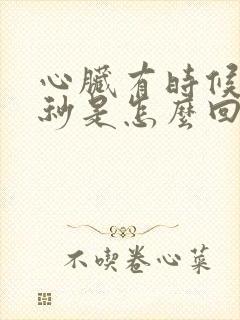 心臟有時候
秒是怎麼回
不喫卷心菜